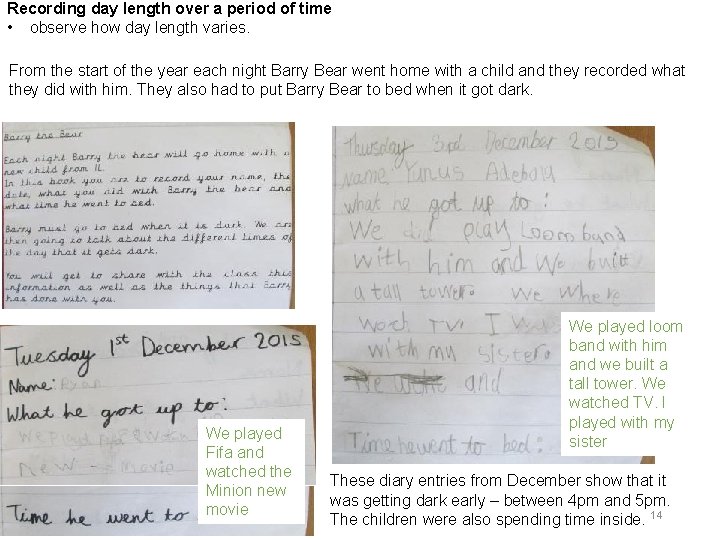 Recording day length over a period of time
• observe how day length varies.
From the start of the year each night Barry Bear went home with a child and they recorded what
they did with him. They also had to put Barry Bear to bed when it got dark.
Barry the Bear
Each night Barry the bear will go home with a
new child from 1L.
In this book you are to record your name, the
date, what you did with Barry the bear and
what time he went to bed.
Barry must go to bed when it is dark. We are
then going to talk about the different times of
the day that it gets dark.
You will get to share with the class this
information as well as the things that Barry
has done with you.
Thursday 3rd December 2015
name: Yunus Adebola
what he got up to:
We did play Loom band
with him and we built
a tall tower. We where
woch TV. I
with my sister.
and
Time he went to bed:
We played loom
band with him
and we built a
tall tower. We
watched TV. I
played with my
sister
Tuesday 1st December 2015
Name: Ryan
What he got up to:
new movie
Time he went to
We played
Fifa and
watched the
Minion new
movie
These diary entries from December show that it
was getting dark early – between 4pm and 5pm.
The children were also spending time inside. 14